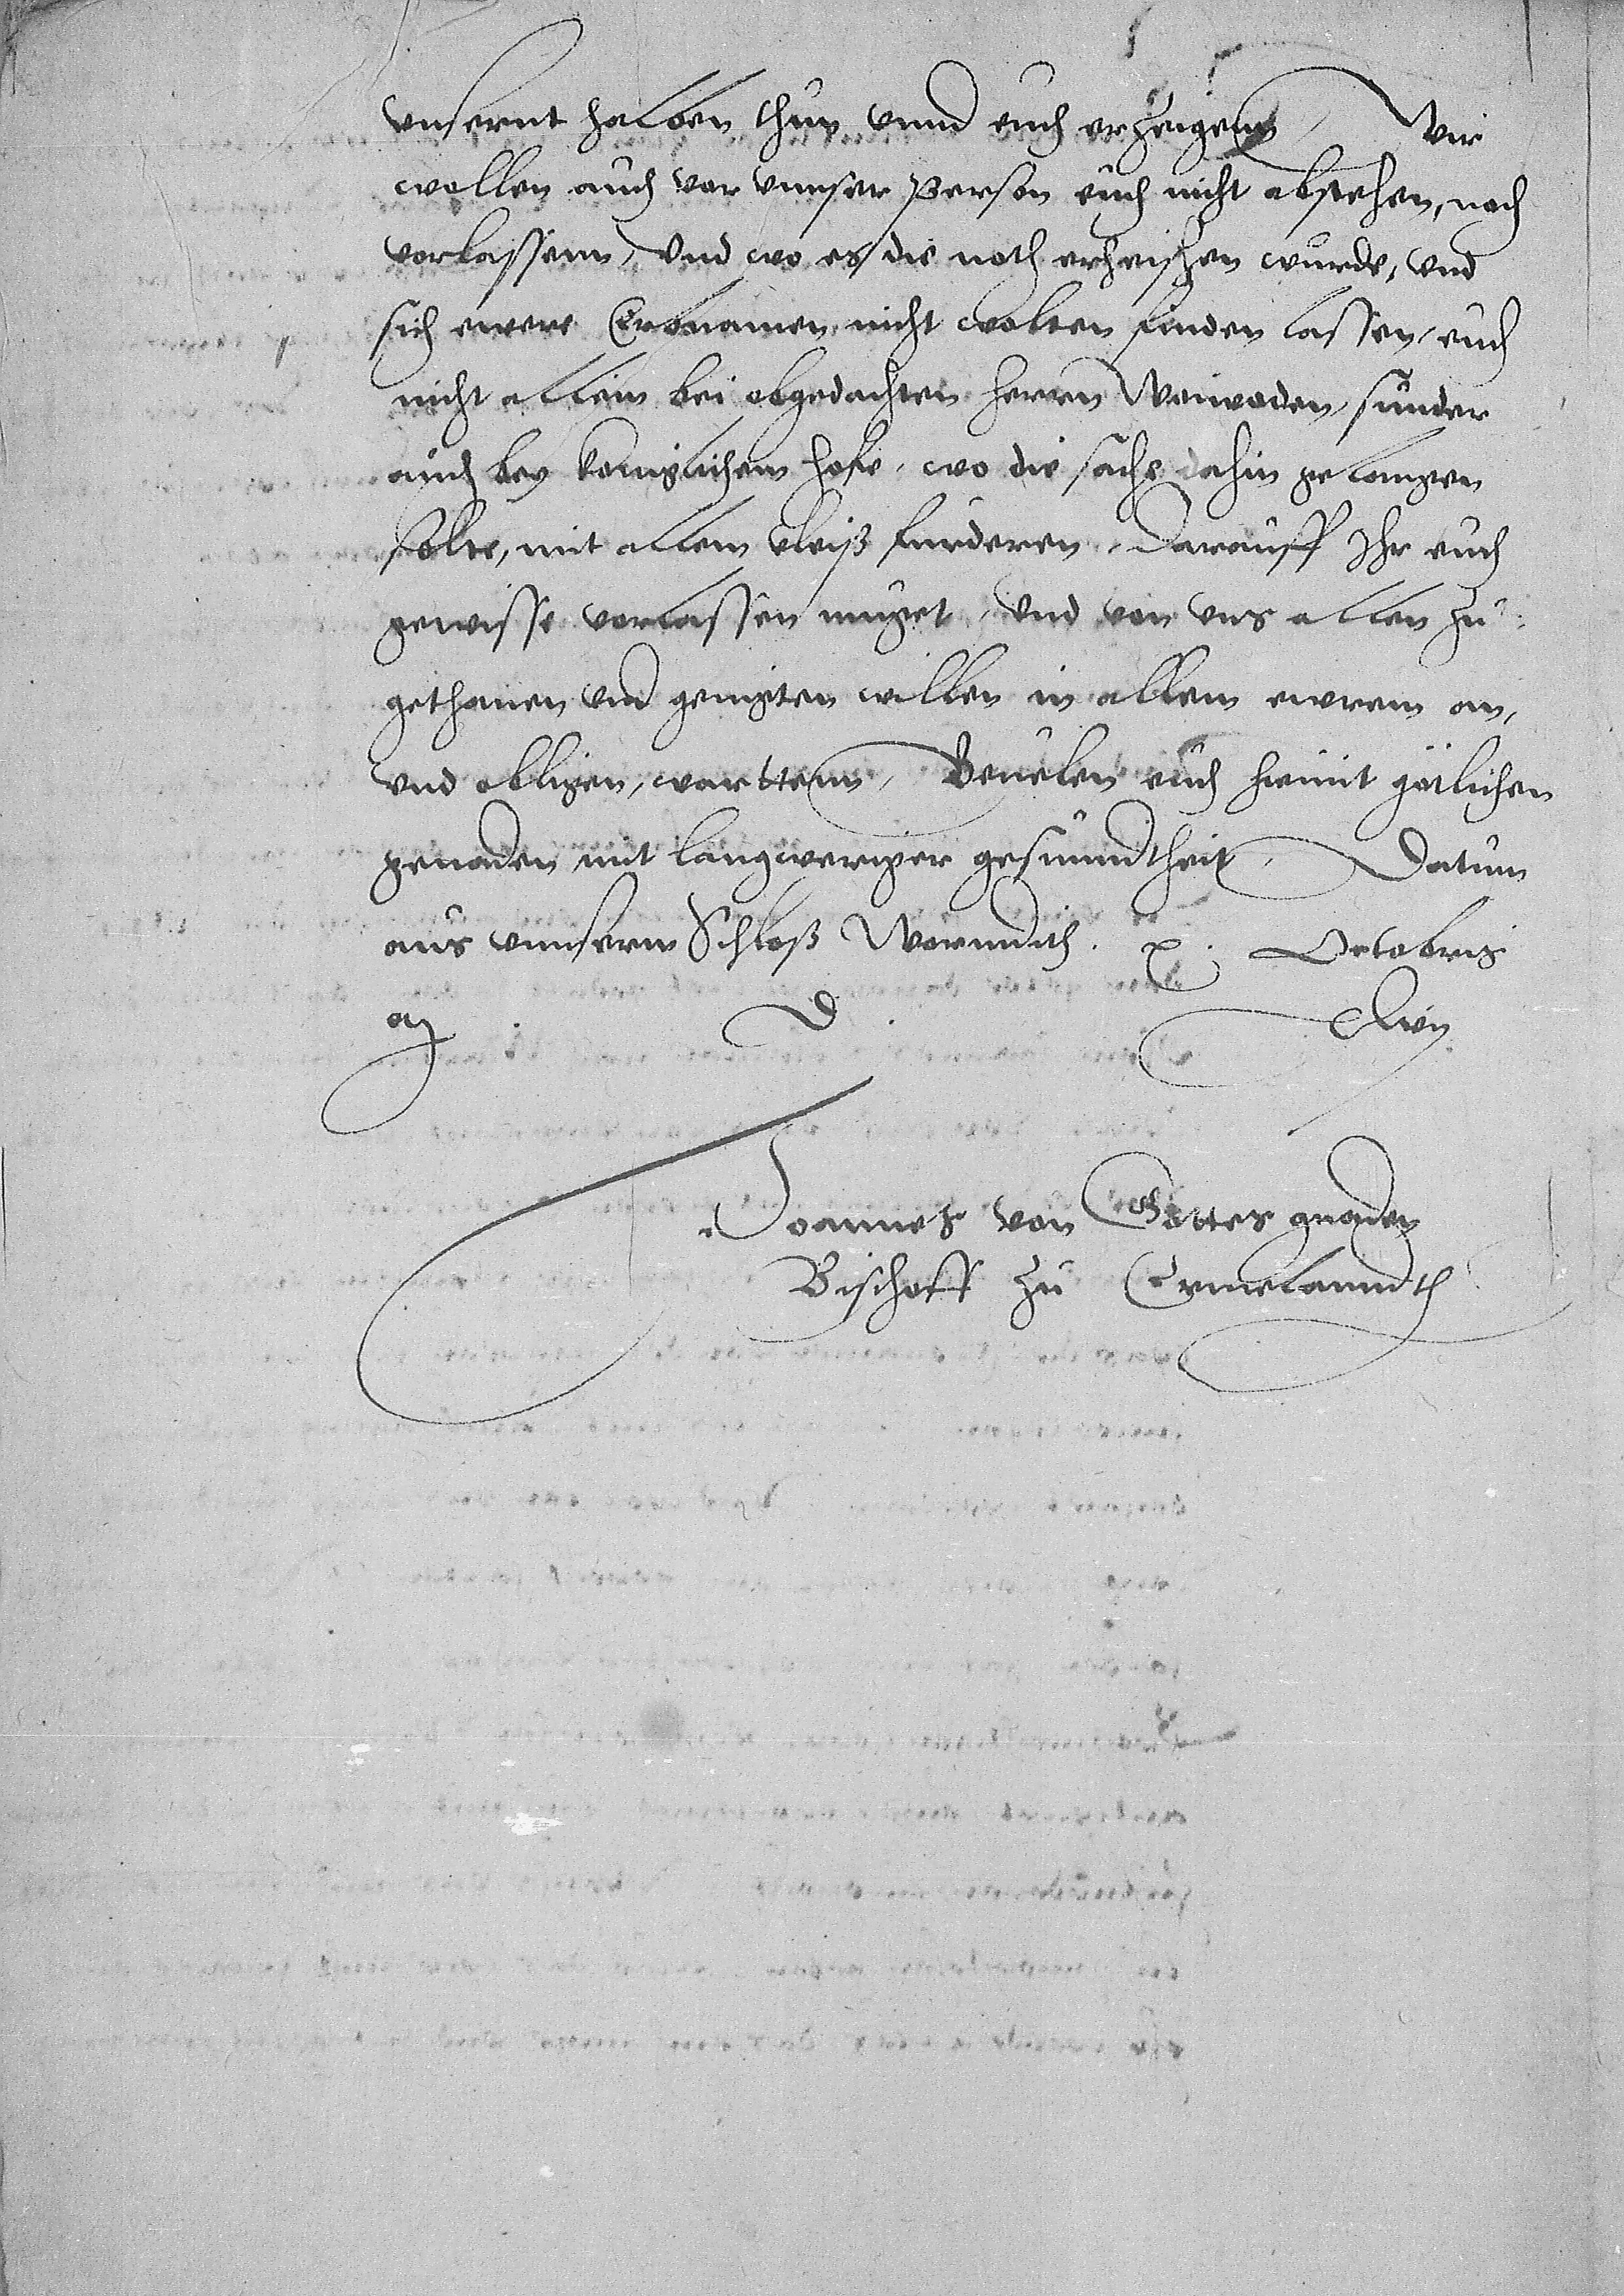 vnsernt halben thun vnnd euch erzeigenn, Wir
wollen auch vor vnnser Person euch nicht abstehen, noch
vorlassenn, Vnd wo es die noth erheischen wurde, vnd
sich ewere Erbnamen, nicht wolten finden lassen, euch
nicht allein bei obgedachten herren Woiwoden, sunder
auch bey koniglichem hofe, wo die sache dahin gelangen
solte, mit allem vleiß furderen, Darauff Ihr euch
gewisse vorlassen muget, Vnd von vns allen zu
gethanen vnd geneigten willen in allem ewrem an,
vnd obligen, warttenn, Beuelen euch hiemit götlichen
genaden mit langweriger gesunndtheit, Datum
aus vnnserm Schloß Wormdith. X. Octobris
A D
Joannes von Gottes gnaden
Bischoff zu Ermelanndth